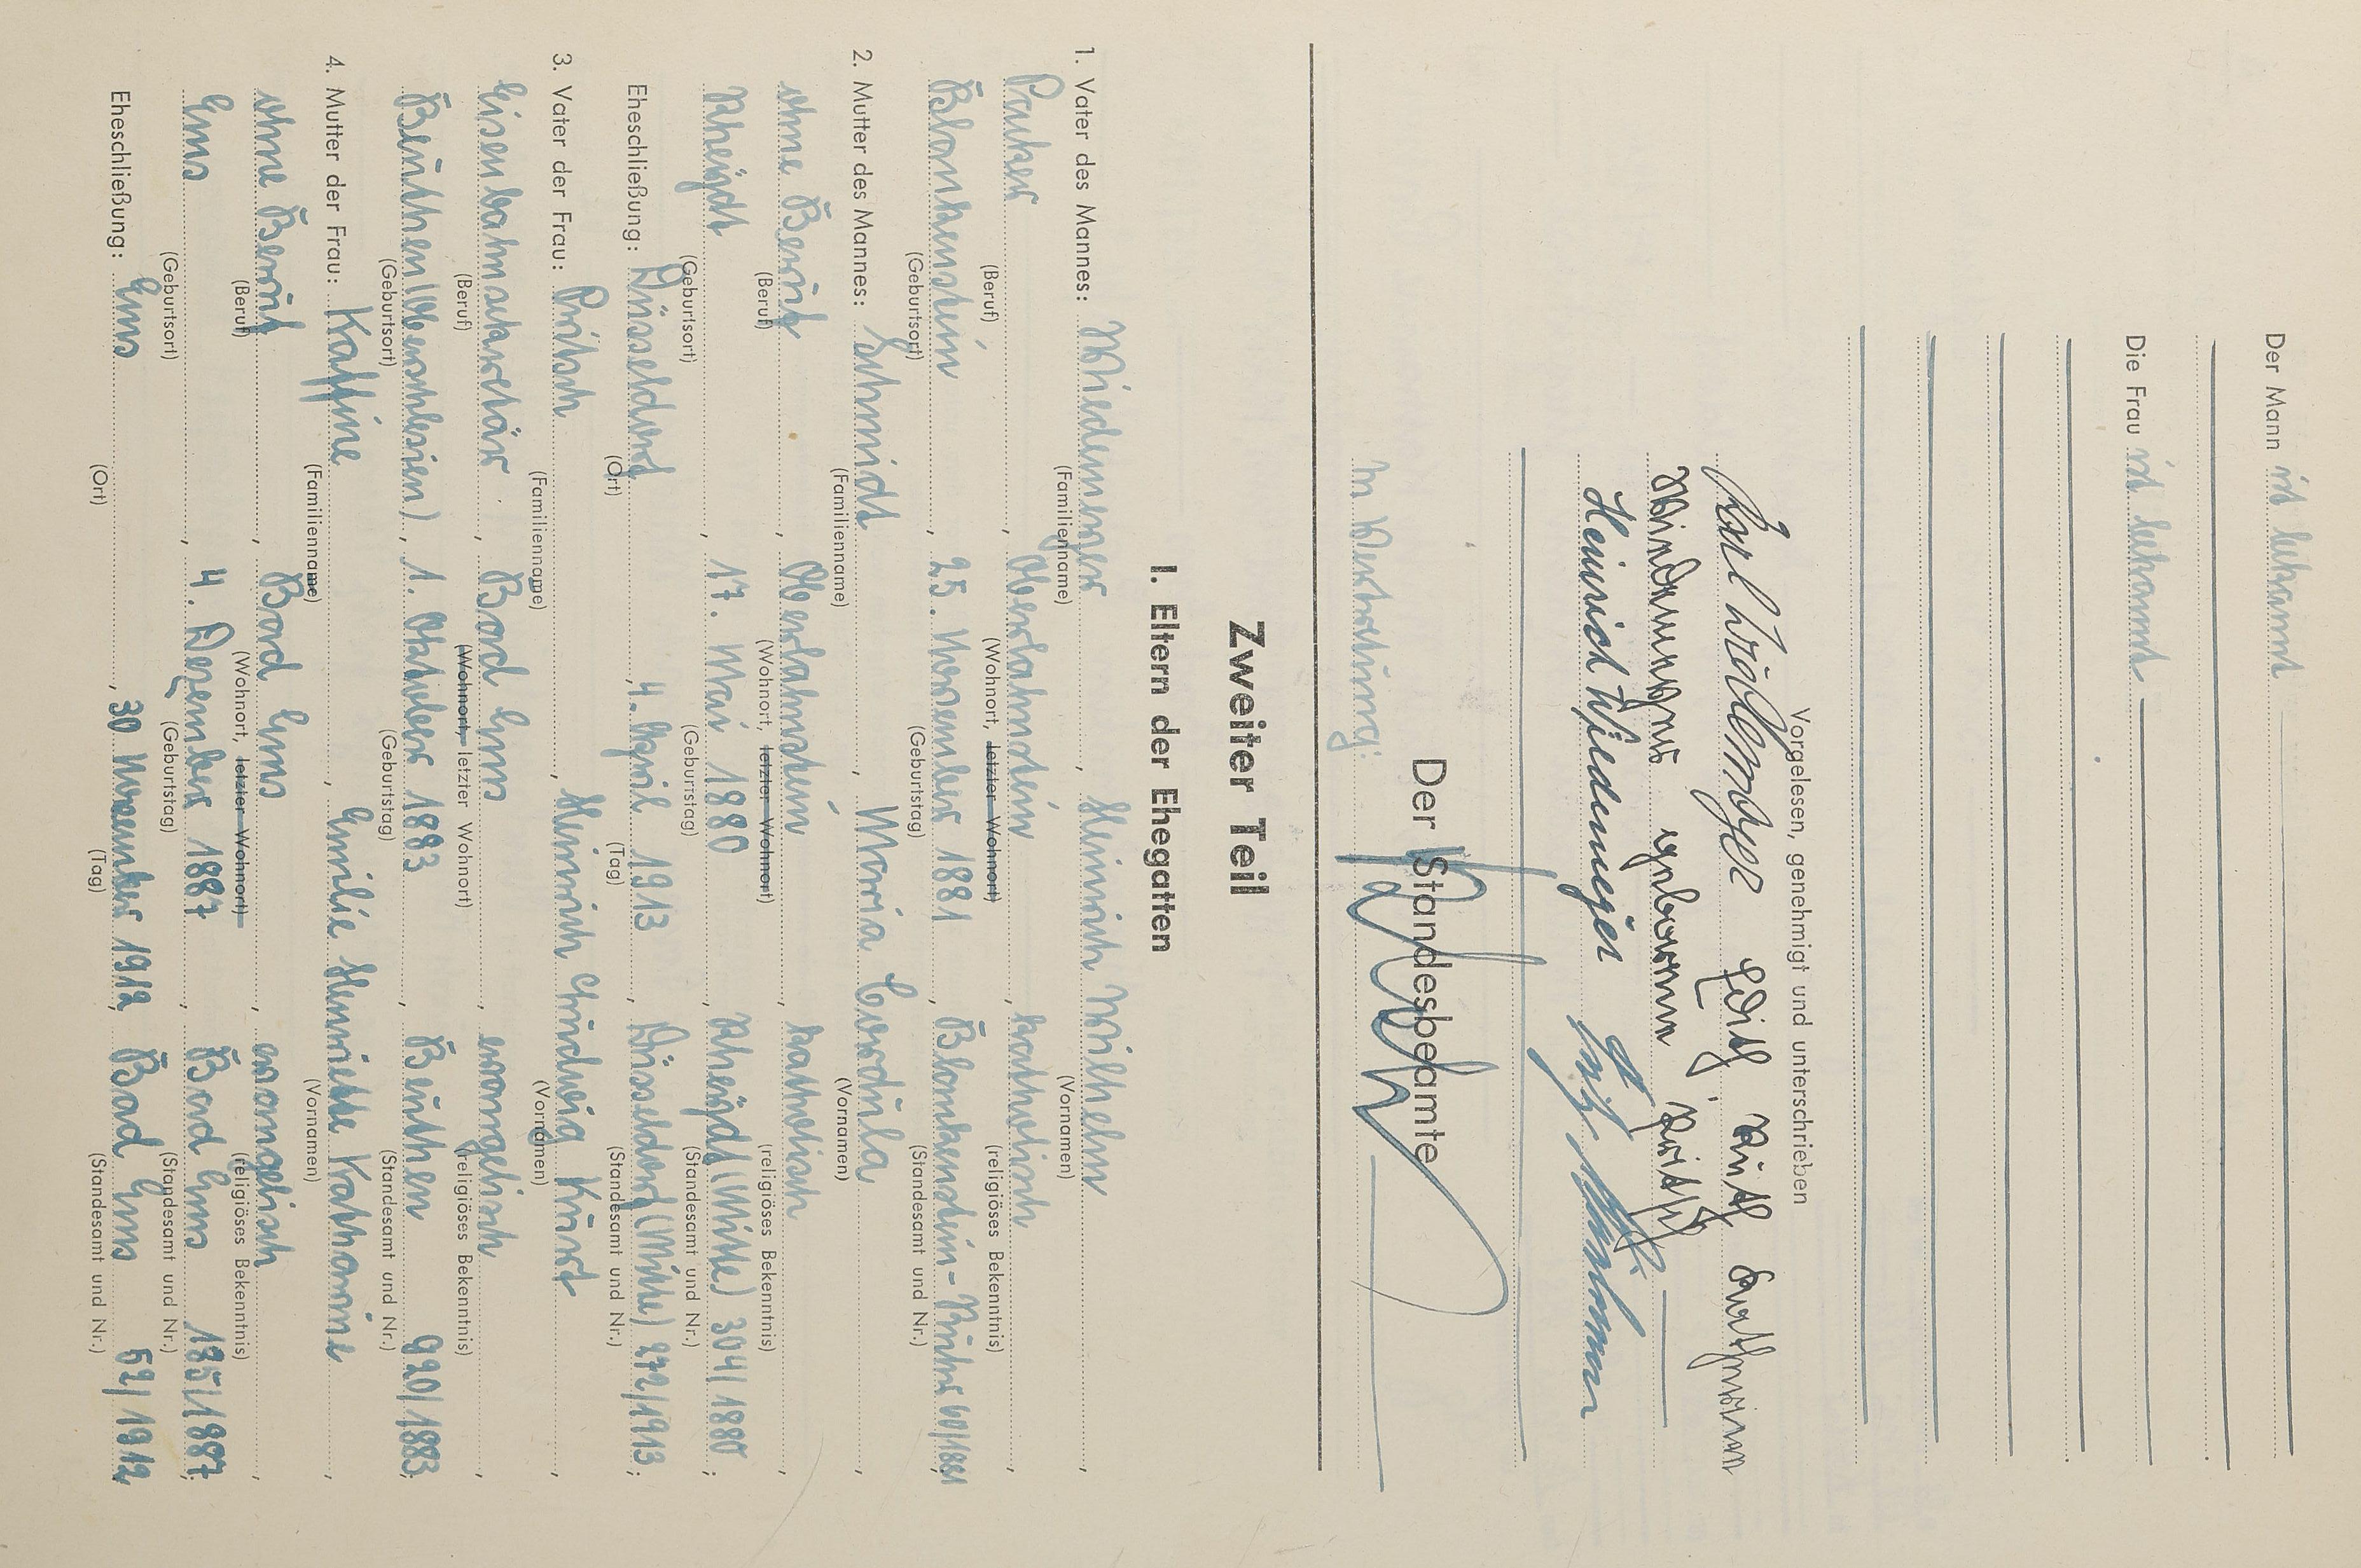 Der Mann ist bekannt
Die Frau ist bekannt
Vorgelesen, genehmigt und unterschrieben
Edith Ruth
Wiedemeyer geborene Pritsch
Heinrich Wiedemeyer
Der Standesbeamte
In Vertretung:
Zweiter Teil
I. Eltern der Ehegatten
1. Vater des Mannes: Wiedemeyer, Heinrich Wilhelm,
(Familienname) (Vornamen)
Oberlahnstein, katholisch,
(Beruf) (Wohnort, letzter Wohnort) (religiöses Bekenntnis)
Blankenstein, 25. November 1881, Blankenstein-Ruhr 60/1881;
(Geburtsort) (Geburtstag) (Standesamt und Nr.)
2. Mutter des Mannes: Schmidt, Maria Cordula,
(Familienname) (Vornamen)
ohne Beruf, Oberlahnstein, katholisch,
(Beruf) (Wohnort, letzter Wohnort) (religiöses Bekenntnis)
Rheydt, 17. Mai 1880, Rheydt (Mitte) 304/1880;
(Geburtsort) (Geburtstag) (Standesamt und Nr.)
Eheschließung: Düsseldorf, 4. April 1913, Düsseldorf (Mitte) 472/1913;
(Ort) (Tag) (Standesamt und Nr.)
3. Vater der Frau: Pritsch, Heinrich Ludwig Kurt,
(Familienname) (Vornamen)
Eisenbahnsekretär, Bad Ems, evangelisch,
(Beruf) (Wohnort, letzter Wohnort) (religiöses Bekenntnis)
Beuthen (Oberschlesien), 1. Oktober 1883, Beuthen 920/1883;
(Geburtsort) (Geburtstag) (Standesamt und Nr.)
4. Mutter der Frau: Kaffine, Emilie Henriette Katharine,
(Familienname) (Vornamen)
ohne Beruf, Bad Ems, evangelisch,
(Beruf) (Wohnort, letzter Wohnort) (religiöses Bekenntnis)
Ems, 4. Dezember 1887, Bad Ems 185/1887;
(Geburtsort) (Geburtstag) (Standesamt und Nr.)
Eheschließung: Ems, 30 November 1912, Bad Ems 52/1912
(Ort) (Tag) (Standesamt und Nr.)